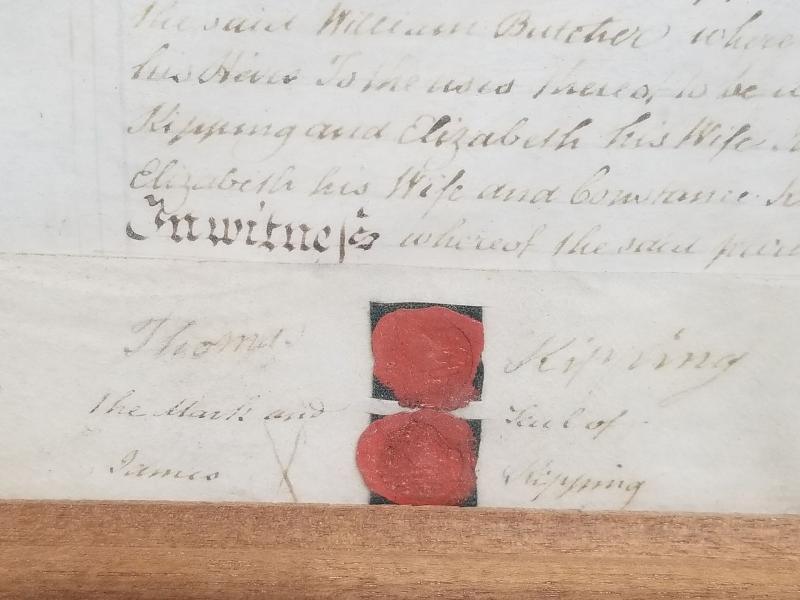 the said William Butcher where
his Heirs To the uses thereof to be
Kipping and Elizabeth his Wife
Elizabeth his Wife and Constance
In witness whereof the said
Thoms. Kipping
The Mark and Seal of
James X Kipping